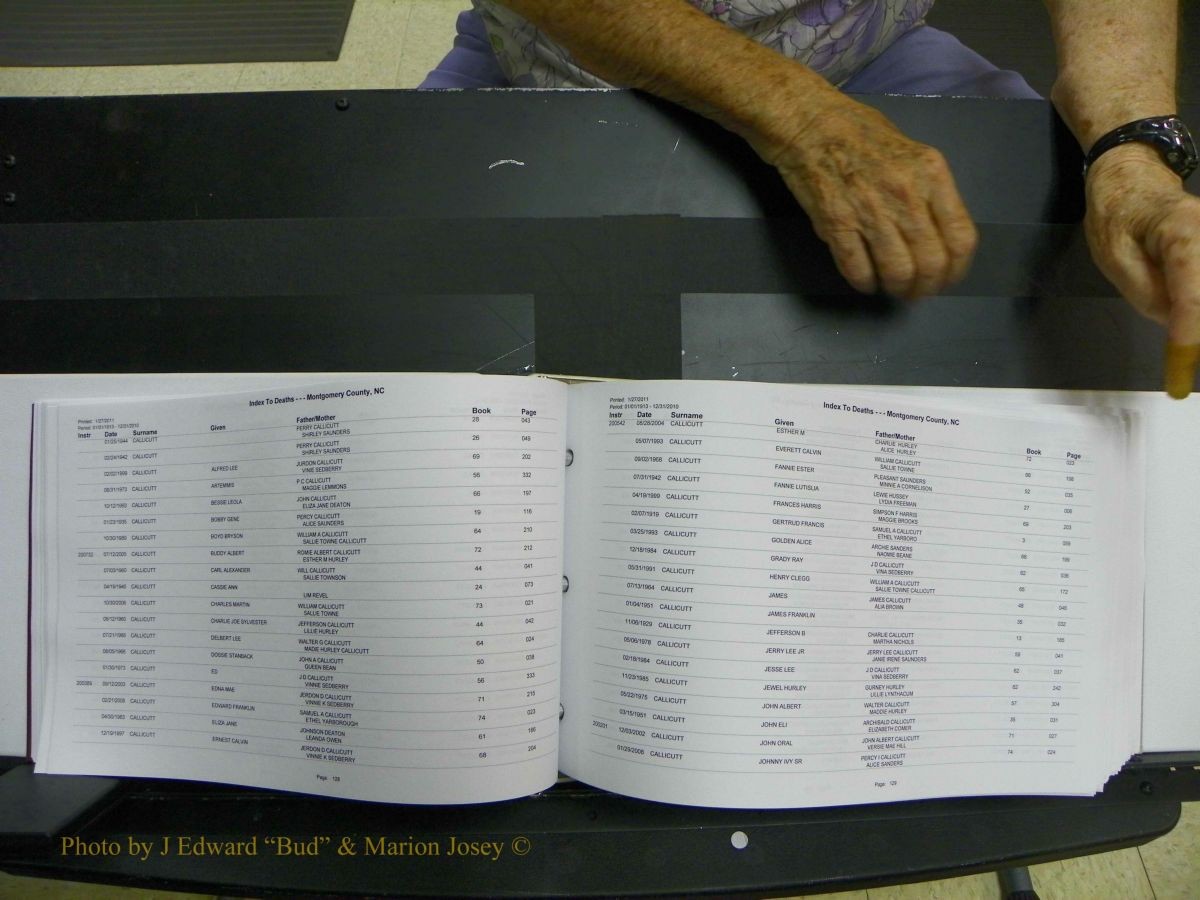 Index To Deaths - - - Montgomery County, NC
Printed: 1/27/2011
Period: 01/01/1913 - 12/31/2010
Instr Date Surname Given Father/Mother Book Page
01/25/1944 CALLICUTT PERRY CALLICUTT 28 043
SHIRLEY SAUNDERS
02/24/1942 CALLICUTT PERRY CALLICUTT 26 049
SHIRLEY SAUNDERS
02/02/1999 CALLICUTT ALFRED LEE JURDON CALLICUTT 69 202
VINIE SEDBERRY
08/31/1973 CALLICUTT ARTEMMIS P C CALLICUTT 56 332
MAGGIE LEMMONS
10/12/1993 CALLICUTT BESSIE LEOLA JOHN CALLICUTT 66 197
ELIZA JANE DEATON
01/23/1935 CALLICUTT BOBBY GENE PERCY CALLICUTT 19 116
ALICE SAUNDERS
10/30/1989 CALLICUTT BOYD BRYSON WILLIAM A CALLICUTT 64 210
SALLIE TOWNE CALLICUTT
200732 07/12/2005 CALLICUTT BUDDY ALBERT ROMIE ALBERT CALLICUTT 72 212
ESTHER M HURLEY
07/03/1960 CALLICUTT CARL ALEXANDER WILL CALLICUTT 44 041
SALLIE TOWNSON
04/19/1940 CALLICUTT CASSIE ANN 24 073
LIM REVEL
10/30/2006 CALLICUTT CHARLES MARTIN WILLIAM CALLICUTT 73 021
SALLIE TOWNE
06/12/1960 CALLICUTT CHARLIE JOE SYLVESTER JEFFERSON CALLICUTT 44 042
LILLIE HURLEY
07/21/1988 CALLICUTT DELBERT LEE WALTER G CALLICUTT 64 024
MADIE HURLEY CALLICUTT
08/05/1966 CALLICUTT DOSSIE STANBACK JOHN A CALLICUTT 50 038
QUEEN BEAN
01/30/1973 CALLICUTT ED J D CALLICUTT 56 333
VINNIE SEDBERRY
200385 09/12/2003 CALLICUTT EDNA MAE JERDON D CALLICUTT 71 215
VINNIE K SEDBERRY
02/21/2008 CALLICUTT EDWARD FRANKLIN SAMUEL A CALLICUTT 74 023
ETHEL YARBOROUGH
04/30/1983 CALLICUTT ELIZA JANE JOHNSON DEATON 61 186
LEANDA OWEN
12/19/1997 CALLICUTT ERNEST CALVIN JERDON D CALLICUTT 68 204
VINNIE K SEDBERRY
Page: 128
Index To Deaths - - - Montgomery County, NC
Printed: 1/27/2011
Period: 01/01/1913 - 12/31/2010
Instr Date Surname Given Father/Mother Book Page
200542 08/28/2004 CALLICUTT ESTHER M CHARLIE HURLEY 72 023
ALICE HURLEY
05/07/1993 CALLICUTT EVERETT CALVIN WILLIAM CALLICUTT 66 198
SALLIE TOWNE
09/02/1968 CALLICUTT FANNIE ESTER PLEASANT SAUNDERS 52 035
MINNIE A CORNELISON
07/31/1942 CALLICUTT FANNIE LUTISLIA LEWIE HUSSEY 27 008
LYDIA FREEMAN
04/19/1999 CALLICUTT FRANCES HARRIS SIMPSON F HARRIS 69 203
MAGGIE BROOKS
02/07/1919 CALLICUTT GERTRUD FRANCIS SAMUEL A CALLICUTT 3
ETHEL YARBORO
03/25/1993 CALLICUTT GOLDEN ALICE ARCHIE SANDERS 66 199
NAOMIE BEANE
12/18/1984 CALLICUTT GRADY RAY J D CALLICUTT 62 036
VINA SEDBERRY
05/31/1991 CALLICUTT HENRY CLEGG WILLIAM A CALLICUTT 65 172
SALLIE TOWNE CALLICUTT
07/13/1964 CALLICUTT JAMES JAMES CALLICUTT 48 046
ALIA BROWN
01/04/1951 CALLICUTT JAMES FRANKLIN 35 032
11/06/1929 CALLICUTT JEFFERSON B CHARLIE CALLICUTT 13 185
MARTHA NICHOLS
05/06/1978 CALLICUTT JERRY LEE JR JERRY LEE CALLICUTT 59 041
JANIE IRENE SAUNDERS
02/18/1984 CALLICUTT JESSE LEE J D CALLICUTT 62 037
VINA SEDBERRY
11/23/1985 CALLICUTT JEWEL HURLEY GURNEY HURLEY 62 242
LILLIE LYNTHACUM
05/22/1975 CALLICUTT JOHN ALBERT WALTER CALLICUTT 57 304
MADDIE HURLEY
03/15/1951 CALLICUTT JOHN ELI ARCHIBALD CALLICUTT 35 031
ELIZABETH COMER
200201 12/03/2002 CALLICUTT JOHN ORAL JOHN ALBERT CALLICUTT 71 027
VERSIE MAE HILL
01/29/2008 CALLICUTT JOHNNY IVY SR PERCY I CALLICUTT 74 024
ALICE SANDERS
Page: 129
Photo by J Edward “Bud” & Marion Josey ©